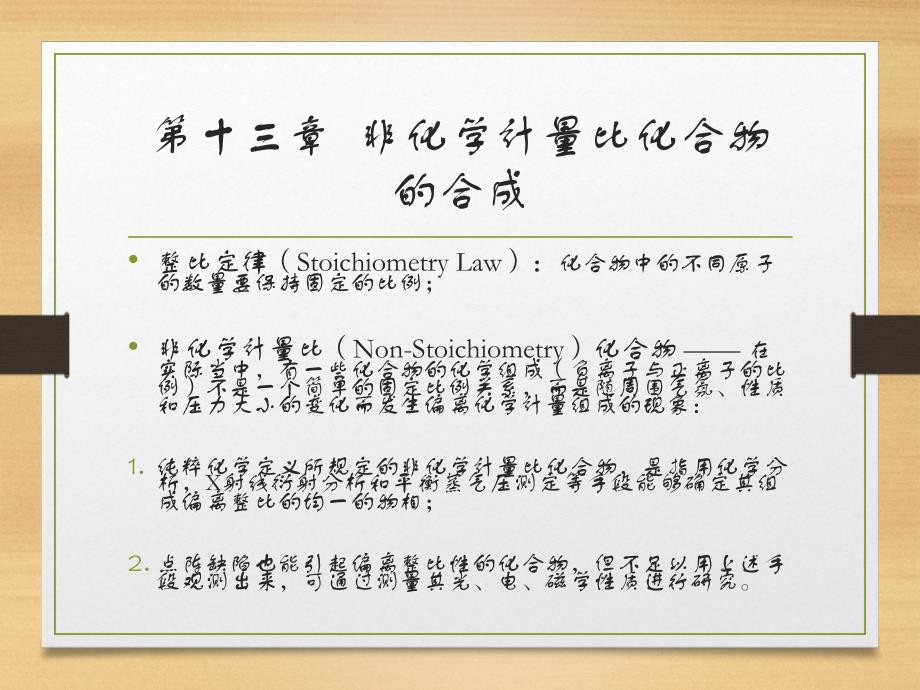 第十三章 非化学计量比化合物
的合成
• 整比定律（Stoichiometry Law）：化合物中的不同原子
的数量要保持固定的比例；
• 非化学计量比（Non-Stoichiometry）化合物 —— 在
实际当中，有一些化合物的化学组成（负离子与正离子的比
例）不是一个简单的固定比例关系，而是随周围气氛、性质
和压力大小的变化而发生偏离化学计量组成的现象：
1. 纯粹化学定义所规定的非化学计量比化合物，是指用化学分
析，X射线衍射分析和平衡蒸气压测定等手段能够确定其组
成偏离整比的均一的物相；
2. 点阵缺陷也能引起偏离整比性的化合物，但不足以用上述手
段观测出来，可通过测量其光、电、磁学性质进行研究。